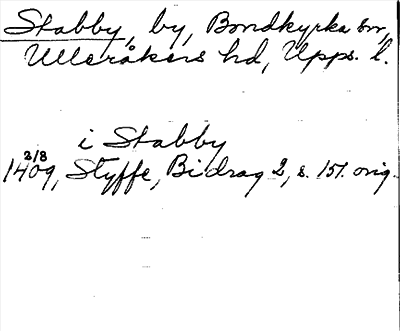 Stabby, by, Bondkyrka sn,
Ulleråkers hd, Upps. l.
i Stabby
2/8
1409, Styffe, Bidrag 2, s. 151. orig.